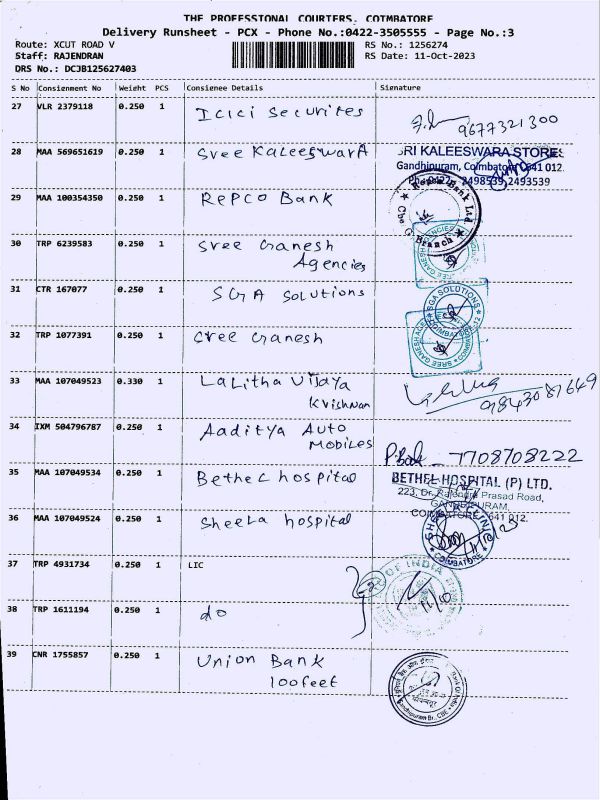 THE PROFESSIONAL COURIERS, COIMBATORE
Delivery Runsheet - PCX - Phone No.:0422-3505555 - Page No.:3
Route: XCUT ROAD V
RS No.: 1256274
Staff: RAJENDRAN
RS Date: 11-Oct-2023
DRS No.: DCJB125627403
S No Consignment No Weight PCS Consienee Details Signature
27 VLR 2379118 0.250 1 Icici Securites
9677321300
28 MAA 569651619 0.250 1 Sree Kaleeswara
SRI KALEESWARA STORES
Gandhipuram, Coimbatore 641 012.
Ph: 0422 - 2498539, 2493539
29 MAA 100354350 0.250 1 Repco Bank
Repco Bank Ltd.
Cbe G. Branch
30 TRP 6239583 0.250 1 Sree Ganesh
Agencies
31 CTR 167077 0.250 1 SGA Solutions
SGA SOLUTIONS
COIMBATORE
32 TRP 1077391 0.250 1 Sree Ganesh
SREE GANESH
33 MAA 107049523 0.330 1 Lalitha Vijaya
Krishnan
9843081649
34 IXM 504796787 0.250 1 Aaditya Auto
Mobiles
7708708222
35 MAA 107049534 0.250 1 Bethel hospital
BETHEL HOSPITAL (P) LTD.
223, Dr. Rajendra Prasad Road,
GANDHIPURAM,
COIMBATORE - 641 012.
36 MAA 107049524 0.250 1 Sheela hospital
COIMBATORE
37 TRP 4931734 0.250 1 LIC
OF INDIA
2
11/10
38 TRP 1611194 0.250 1 do
39 CNR 1755857 0.250 1 Union Bank
100feet
Gandhipuram Br., CBE